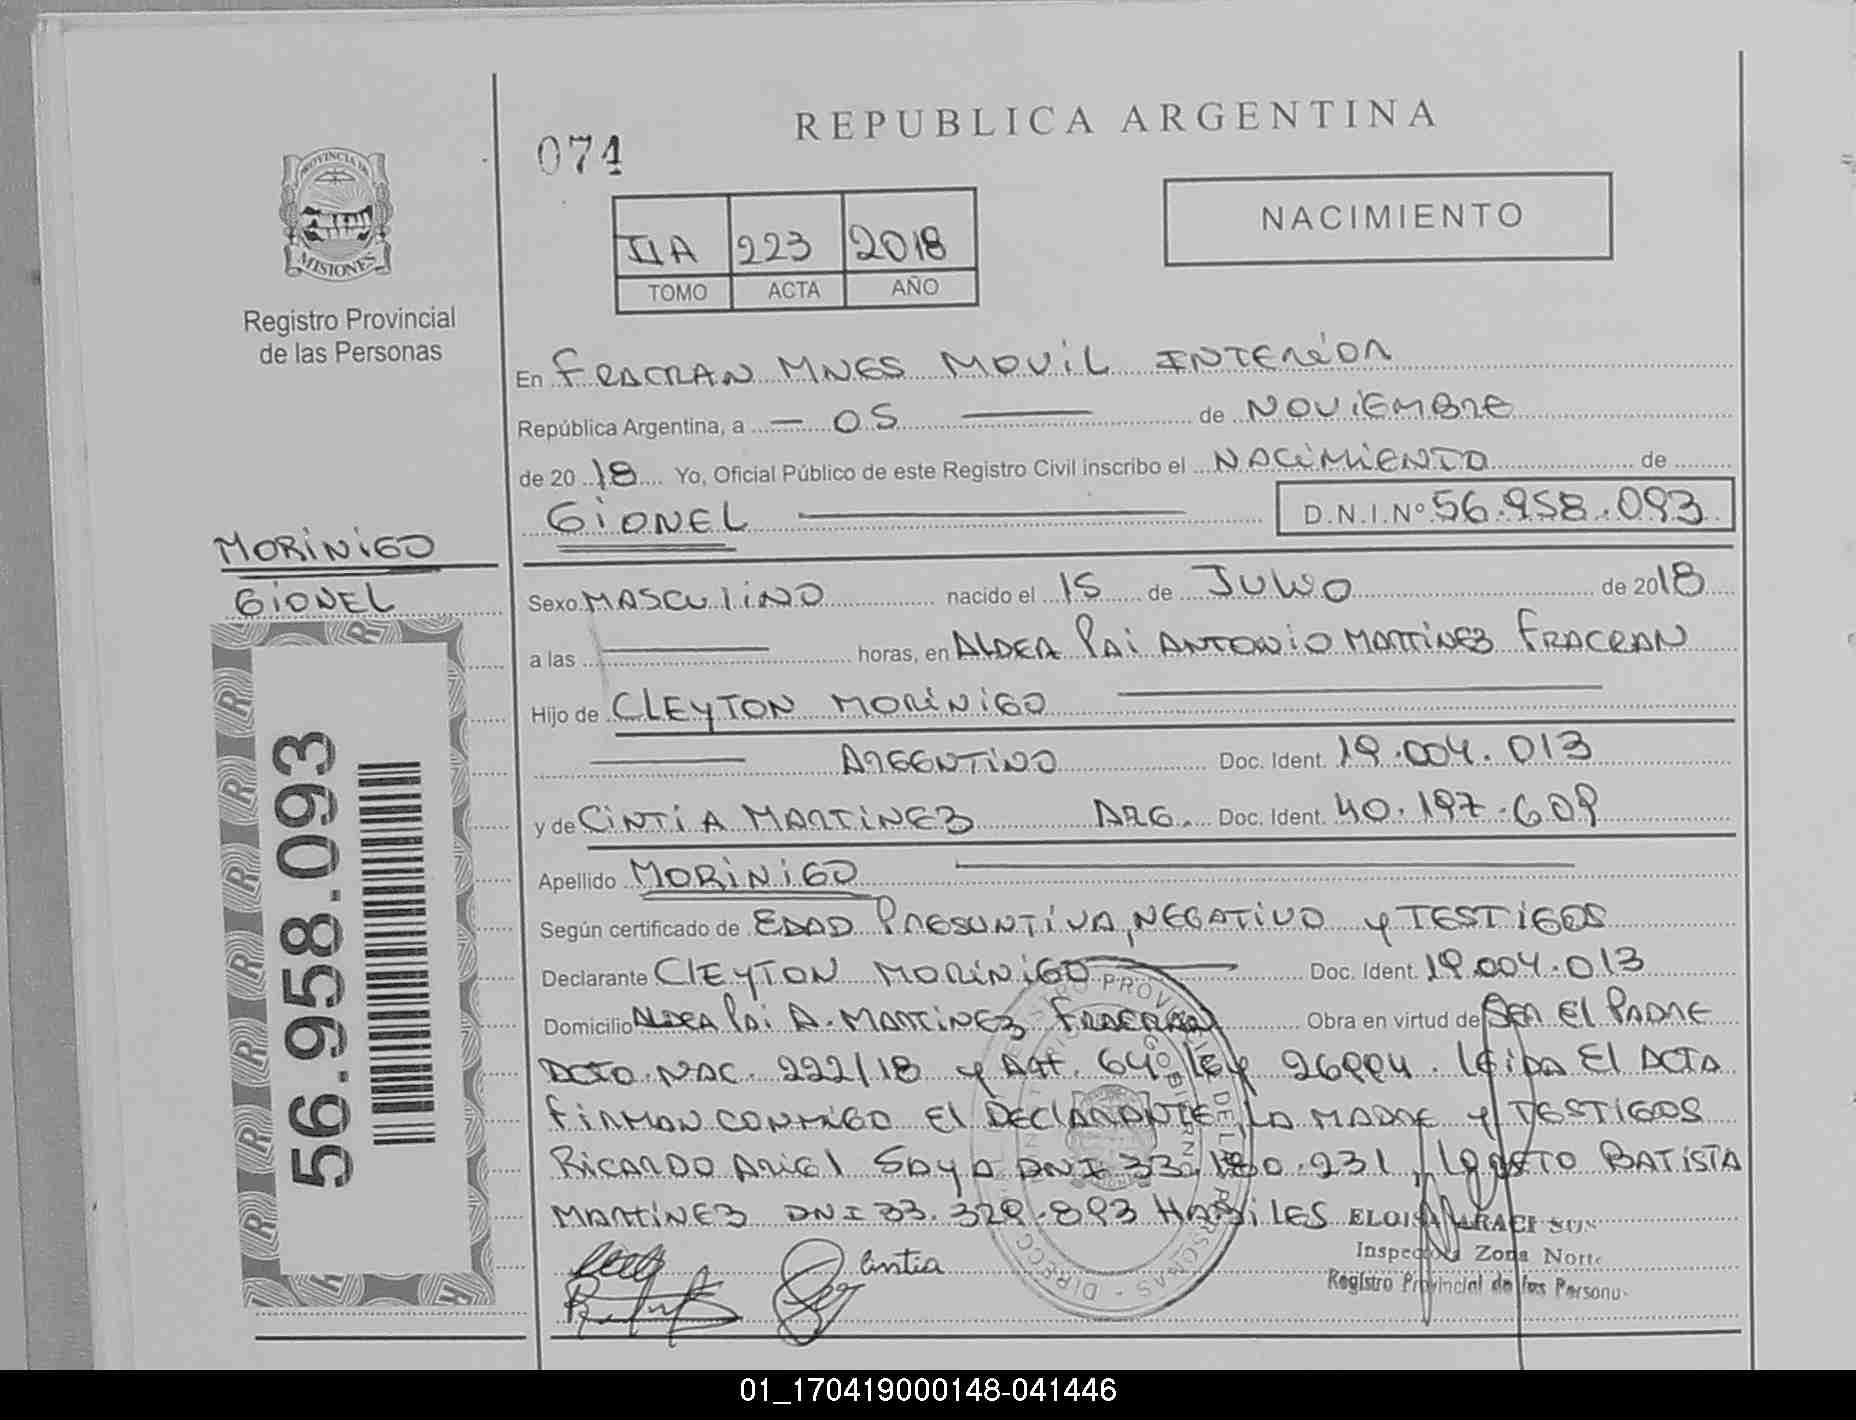 REPUBLICA ARGENTINA
074
NACIMIENTO
IIA 223 2018
TOMO ACTA AÑO
PROVINCIA DE
MISIONES
Registro Provincial
de las Personas
En FRACRAN MNES MOVIL INTERIOR
República Argentina, a - 05 de NOVIEMBRE
de 20 18 Yo, Oficial Público de este Registro Civil inscribo el NACIMIENTO de
GIONEL D.N.I.Nº 56.958.093
MORINIGO
GIONEL
Sexo MASCULINO nacido el 15 de JULIO de 2018
a las horas, en ALDEA PAI ANTONIO MARTINEZ FRACRAN
Hijo de CLEYTON MORINIGO
ARGENTINO Doc. Ident. 19.004.013
y de CINTIA MARTINEZ ARG. Doc. Ident. 40.197.609
Apellido MORINIGO
Según certificado de EDAD PRESUNTIVA, NEGATIVO y TESTIGOS
Declarante CLEYTON MORINIGO Doc. Ident. 19.004.013
Domicilio ALDEA PAI A. MARTINEZ FRACRAN Obra en virtud de SER EL PADRE
DCTO. NAC. 222/18 y Art. 64º ley 26994. LEIDA El ACTA
FIRMAN CONMIGO El DECLARANTE, LA MADRE y TESTIGOS
RICARDO ARIEL DNI 33.180.231, BATISTA
MARTINEZ DNI 33.329.893 HABILES
ELOISA
Inspectora Zona Norte
Registro Provincial de las Persona
Cintia
56.958.093
01_170419000148-041446